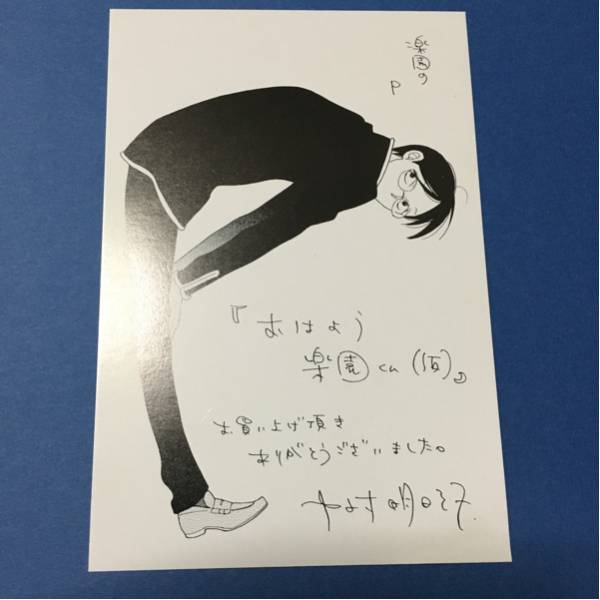 楽園の
P
『おはよう
楽園くん(仮)』
お買い上げ頂き
ありがとうございました。
中村明日美子